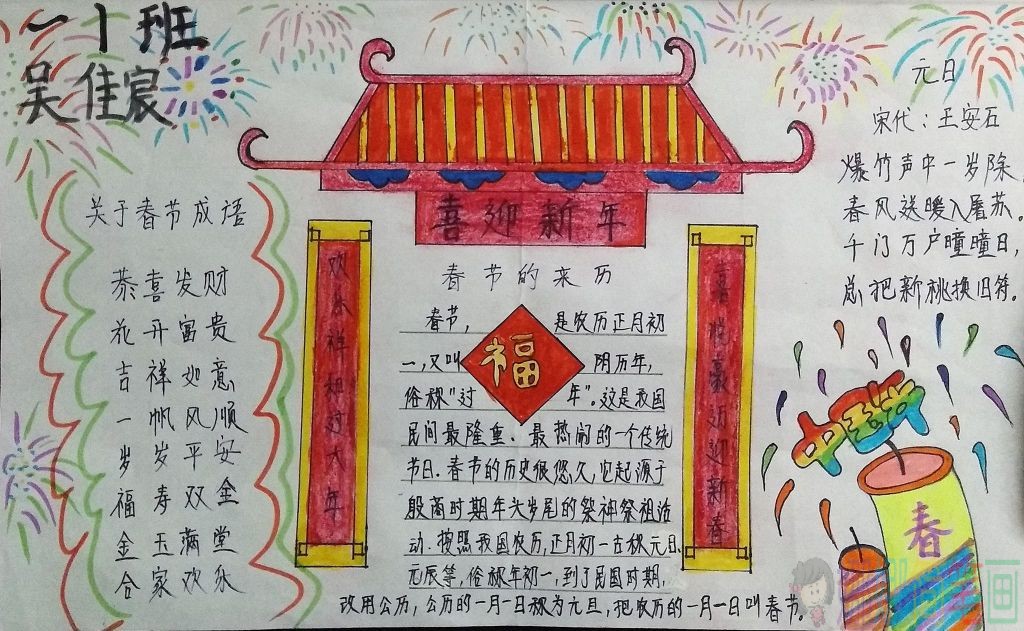 一1班
吴佳宸
关于春节成语
恭喜发财
花开富贵
吉祥如意
一帆风顺
岁岁平安
福寿双全
金玉满堂
合家欢乐
喜迎新年
欢春祥和过大年
喜迎新春
春节的来历
福
春节，是农历正月初
一，又叫阴历年，
俗称"过年"。这是我国
民间最隆重、最热闹的一个传统
节日。春节的历史很悠久，它起源于
殷商时期年头岁尾的祭神祭祖活
动。按照我国农历，正月初一古称元日、
元辰等，俗称年初一，到了民国时期，
改用公历，公历的一月一日称为元旦，把农历的一月一日叫春节。
元日
宋代：王安石
爆竹声中一岁除，
春风送暖入屠苏。
千门万户曈曈日，
总把新桃换旧符。
春